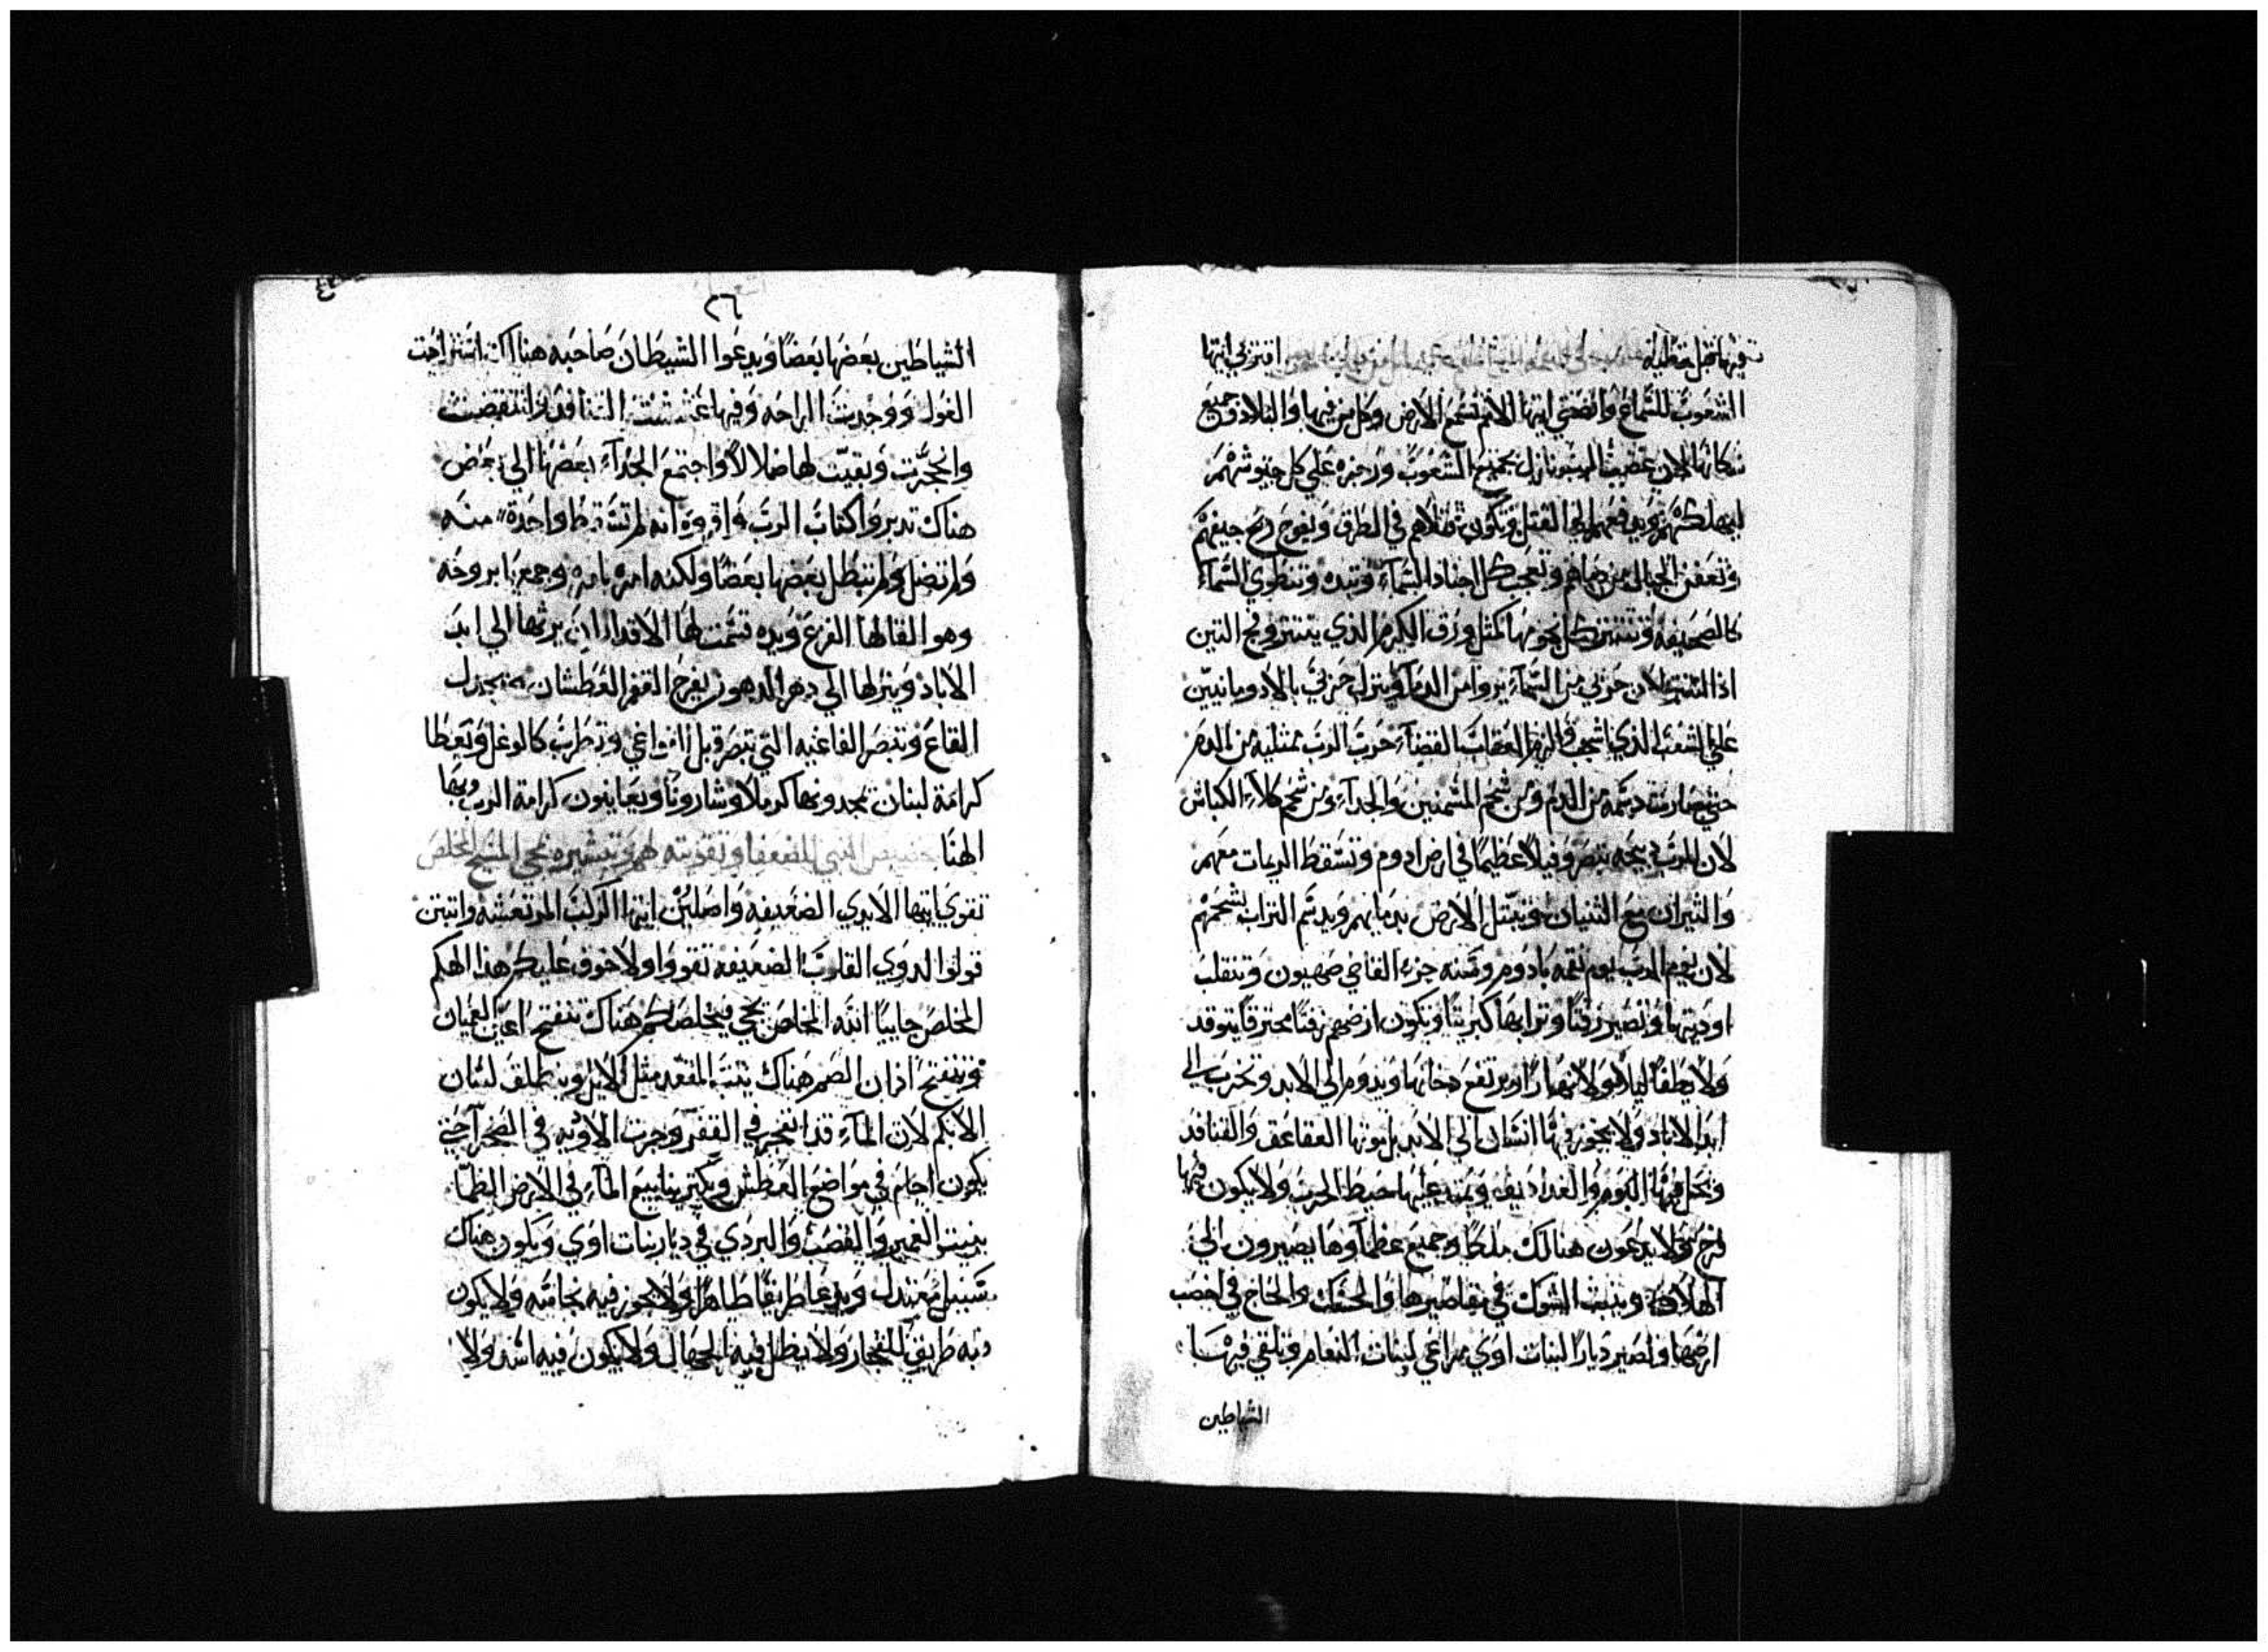 اقتربي ايتها
الشعوب للسماع وانصتي ايتها الامم تسمع الارض وكل من فيها والبلاد وجميع
سكانها لان غضب الرب نازل بجميع الشعوب ورجزه علي كل جيوشهم
ليهلكهم ويدفعهم الي القتل وتكون قتلاهم في الطرق ويفوح ريح جيفهم
وتعفن الجبال من دماهم وتعجب كل اجناد السماء وتبده وتنطوي السماء
كالصحيفة وتنتثر كل نجومها كمثل ورق الكرم الذي ينتثر وفج التين
اذا انتثر لان حربي من السماء يروا من الدماء وينزل حربي بالادومانيين
علي الشعب الذي العقاب القضاء حرب الرب ممتليه من الدم
حتي صارت دسمه من الدم ومن شحم المسمنين والجداء ومن شحم كلاء الكباش
لان للرب ذبيحه ببصر وقتلا عظيما في ارض ادوم وتسقط الريمات معهم
والثيران مع الثنيان وتبتل الارض بدمايهم ويدسم التراب بشحمهم
لان يوم الرب يوم نقمه بادوم وسنه جزاء القاضي صهيون وتنقلب
اوديتها وتصير زفتا وترابها كبريتا وتكون ارضهم زفتا محترقا يتوقد
ولا يطفا ليلا ولا نهارا ويرتفع دخانها ويدوم الي الابد وتخرب الي
ابد الاباد ولا يجوز فيها انسان الي الابد يرثونها العقاعق والقنافد
وتحل فيها البوم والغداديف ويمتد عليها خيط الخرب ولا يكون فيها
فرح ولا يدعون هنالك ملكا وجميع عظماوها يصيرون الي
الهلاك وينبت الشوك في مقاصيرها والحسك والحاج في اخصب
ارضها وتصير ديارا لبنات اوي مراعي لبنات النعام وتلقي فيها
الشياطين
٢٦
الشياطين بعضها بعضا ويدعوا الشيطان صاحبه هناك استراحت
الغول ووجدت الراحه وفيها عششت القنافد وانتفضت
وانجرت وبقيت لها ضلالا واجتمع الجداء بعضها الي بعض
هناك تدبروا كتاب الرب واقروه انه لم تسقط واحدة منه
ولم تضل ولم تبطل بعضها بعضا ولكنه امره بامره وجمعها بروحه
وهو القا لها القرع ويده قسمت لها الاقدار ان يرثها الي ابد
الاباد وينزلها الي دهر الدهور يفرح القفر العطشان تجدل
القاع وتبصر القاعيه التي تبصر قبل وتطرب كالوعل وتعطا
كرامة لبنان تجدونها كرملا وشارونا ويعاينون كرامة الرب وبها
الهنا النبي للضعفا وتقويته لهم وتبشيره بمجي المسيح المخلص
تقوي ايتها الايدي الضعيفه واصلبن ايتها الركب المرتعشه واثبتن
قولوا لدوي القلوب الضعيفه تقووا ولا خوف عليكم هذا الهكم
المخلص جاييا الله المخلص يجي ويخلصكم هناك تنفتح اعين العميان
وتنفتح اذان الصم هناك يثب المقعد مثل الايل وينطلق لسان
الابكم لان الماء قد انفجر في القفر وجرت الاوديه في الصحرا حتي
يكون اجام في مواضع العطش ويكثر ينابيع الماء في الارض الظما
ينبت العمير والقصب والبردي في ديار بنات اوي ويكون هناك
سبيل معتدل ويدعا طريقا طاهرا ولا يجوز فيه نجاسه ولا يكون
فيه طريق للفجار ولا يضل فيه الجهال ولا يكون فيه اسد ولا